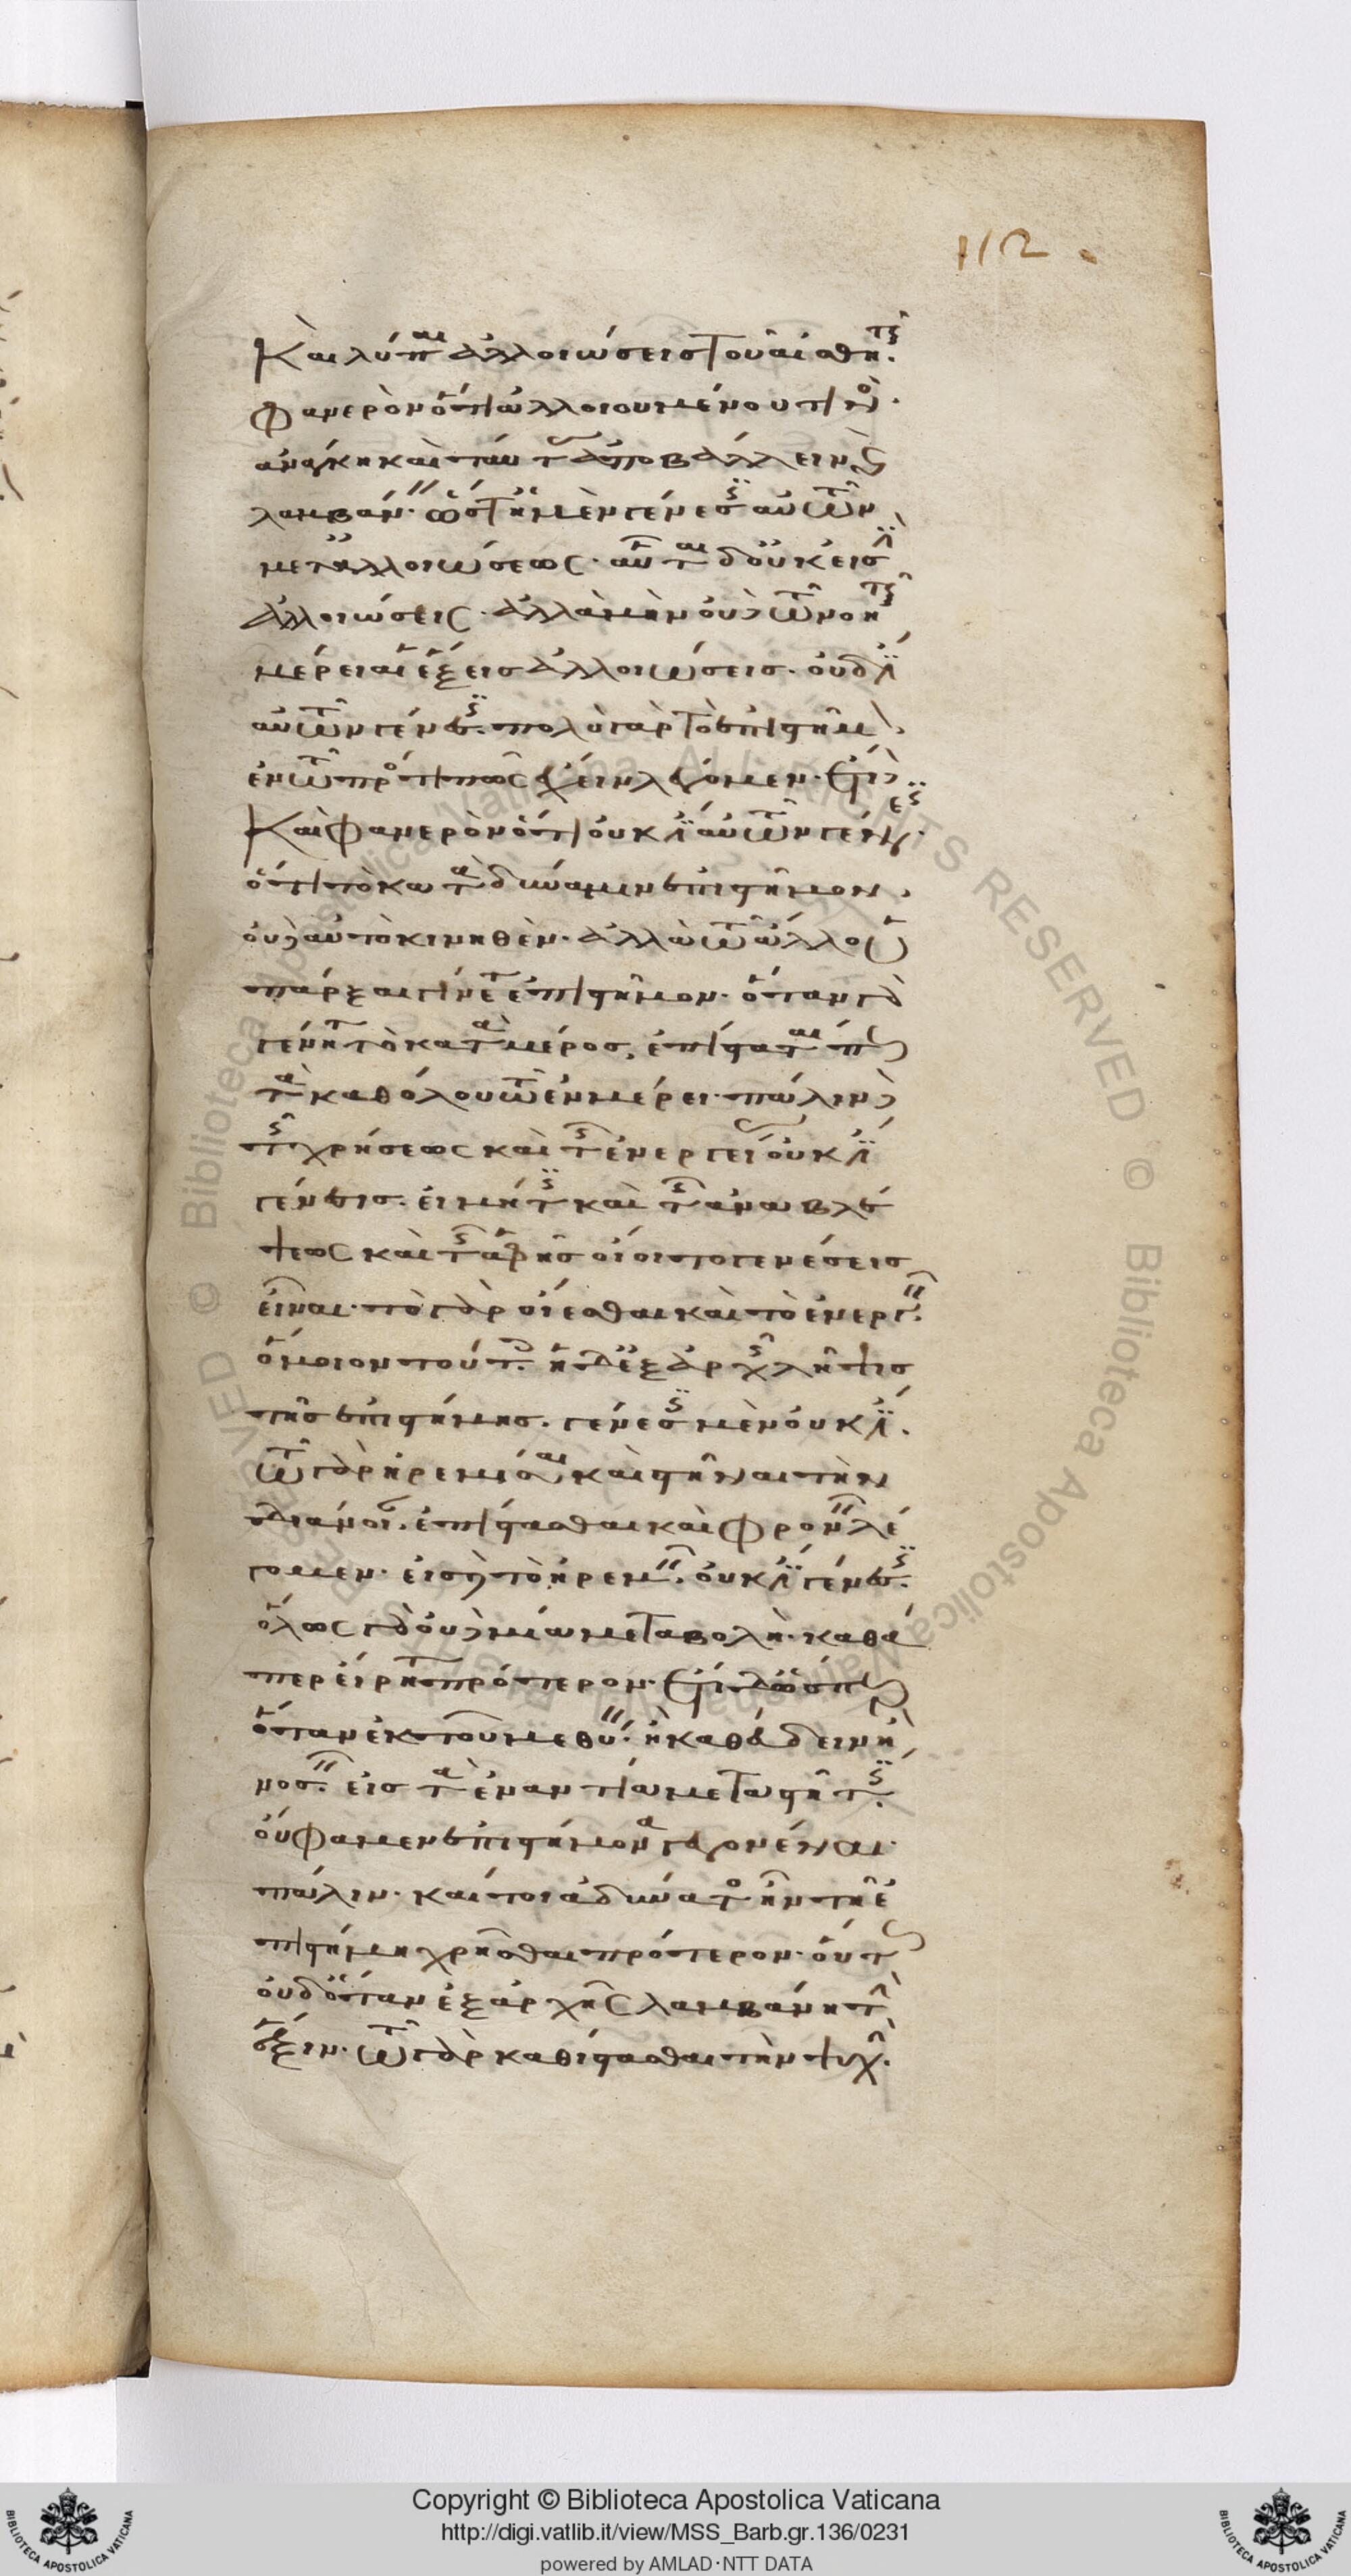 Καὶ λύπαι ἀλλοιώσεις τοῦ αἰσθητικοῦ.
φανερὸν ὅτι ἀλλοιουμένου τινός.
ἀνάγκη καὶ ταύτας ἀποβάλλειν καὶ
λαμβάνειν. ὥστε ἡ μὲν γένεσις αὐτῶν
μετ' ἀλλοιώσεως. αὗται δ' οὐκ εἰσὶν
ἀλλοιώσεις. ἀλλὰ μὴν οὐδὲ τῶ νοητικῶ
μέρει αἱ ἕξεις ἀλλοιώσεις. οὐδ' ἔστιν
αὐτῶν γένεσις. πολὺ γὰρ τὸ ἐπιστῆμον
ἐν τῶ πρός τι πῶς ἔχειν λέγομεν. ἔτι δὲ
Καὶ φανερὸν ὅτι οὐκ ἔστιν αὐτῶν γένεσις.
ὅτι τὸ κατὰ δύναμιν ἐπιστῆμον,
οὐδὲ αὐτὸ κινηθέν. ἀλλὰ τῶ ἄλλο ὑ
πάρξαι γίνεται ἐπιστῆμον. ὅταν γὰρ
γένηται τὸ κατὰ μέρος, ἐπίσταταί πως
τὰ καθόλου τῶ ἐν μέρει. πάλιν δὲ
τῆς χρήσεως καὶ τῆς ἐνεργείας οὐκ ἔστι
γένεσις. εἰ μή τις καὶ τῆς ἀναβλέ
ψεως καὶ τῆς ἁφῆς οἴοιτο γενέσεις
εἶναι. τὸ γὰρ οἴεσθαι καὶ τὸ ἐνεργεῖν.
ὅμοιον τούτοις. ἡ δὲ ἐξαρχῆς λῆψις
τῆς ἐπιστήμης. γένεσις μὲν οὐκ ἔστι.
τῶ γὰρ ἠρεμίσαι καὶ στῆναι τὴν
διάνοιαν. ἐπίστασθαι καὶ φρονεῖν λέ
γομεν. εἰς δὲ τὸ ἠρεμεῖν. οὐκ ἔστι γένεσις.
ὅλως γὰρ οὐδὲ μιᾶ μεταβολή. καθά
περ εἴρηται πρότερον. ἔτι δὲ ὥσπερ
ὅταν ἐκ τοῦ μεθύειν. ἢ καθεύδειν ἢ
νοσεῖν. εἰς τὰ ἐναντία μεταστῆ τις.
οὔ φαμεν ἐπιστήμονα γεγονέναι
πάλιν. καίτοι ἀδύνατος ἦν τῆ ἐ
πιστήμη χρῆσθαι πρότερον. οὕτως
οὐδ' ὅταν ἐξαρχῆς λαμβάνη τὴν
ἕξιν. τῶ γὰρ καθίστασθαι τὴν ψυχὴν.
112.
Copyright © Biblioteca Apostolica Vaticana
http://digi.vatlib.it/view/MSS_Barb.gr.136/0231
powered by AMLAD·NTT DATA